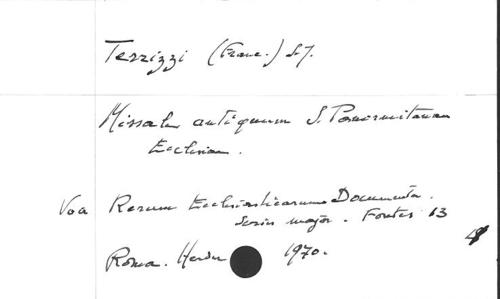 Terrizzi (Franc.) S.J.
Missale antiquum S. Panormitanae
Ecclesiae.
Voa Rerum Ecclesiasticarum Documenta.
Series major. Fontes 13
Roma. Herder 1970.